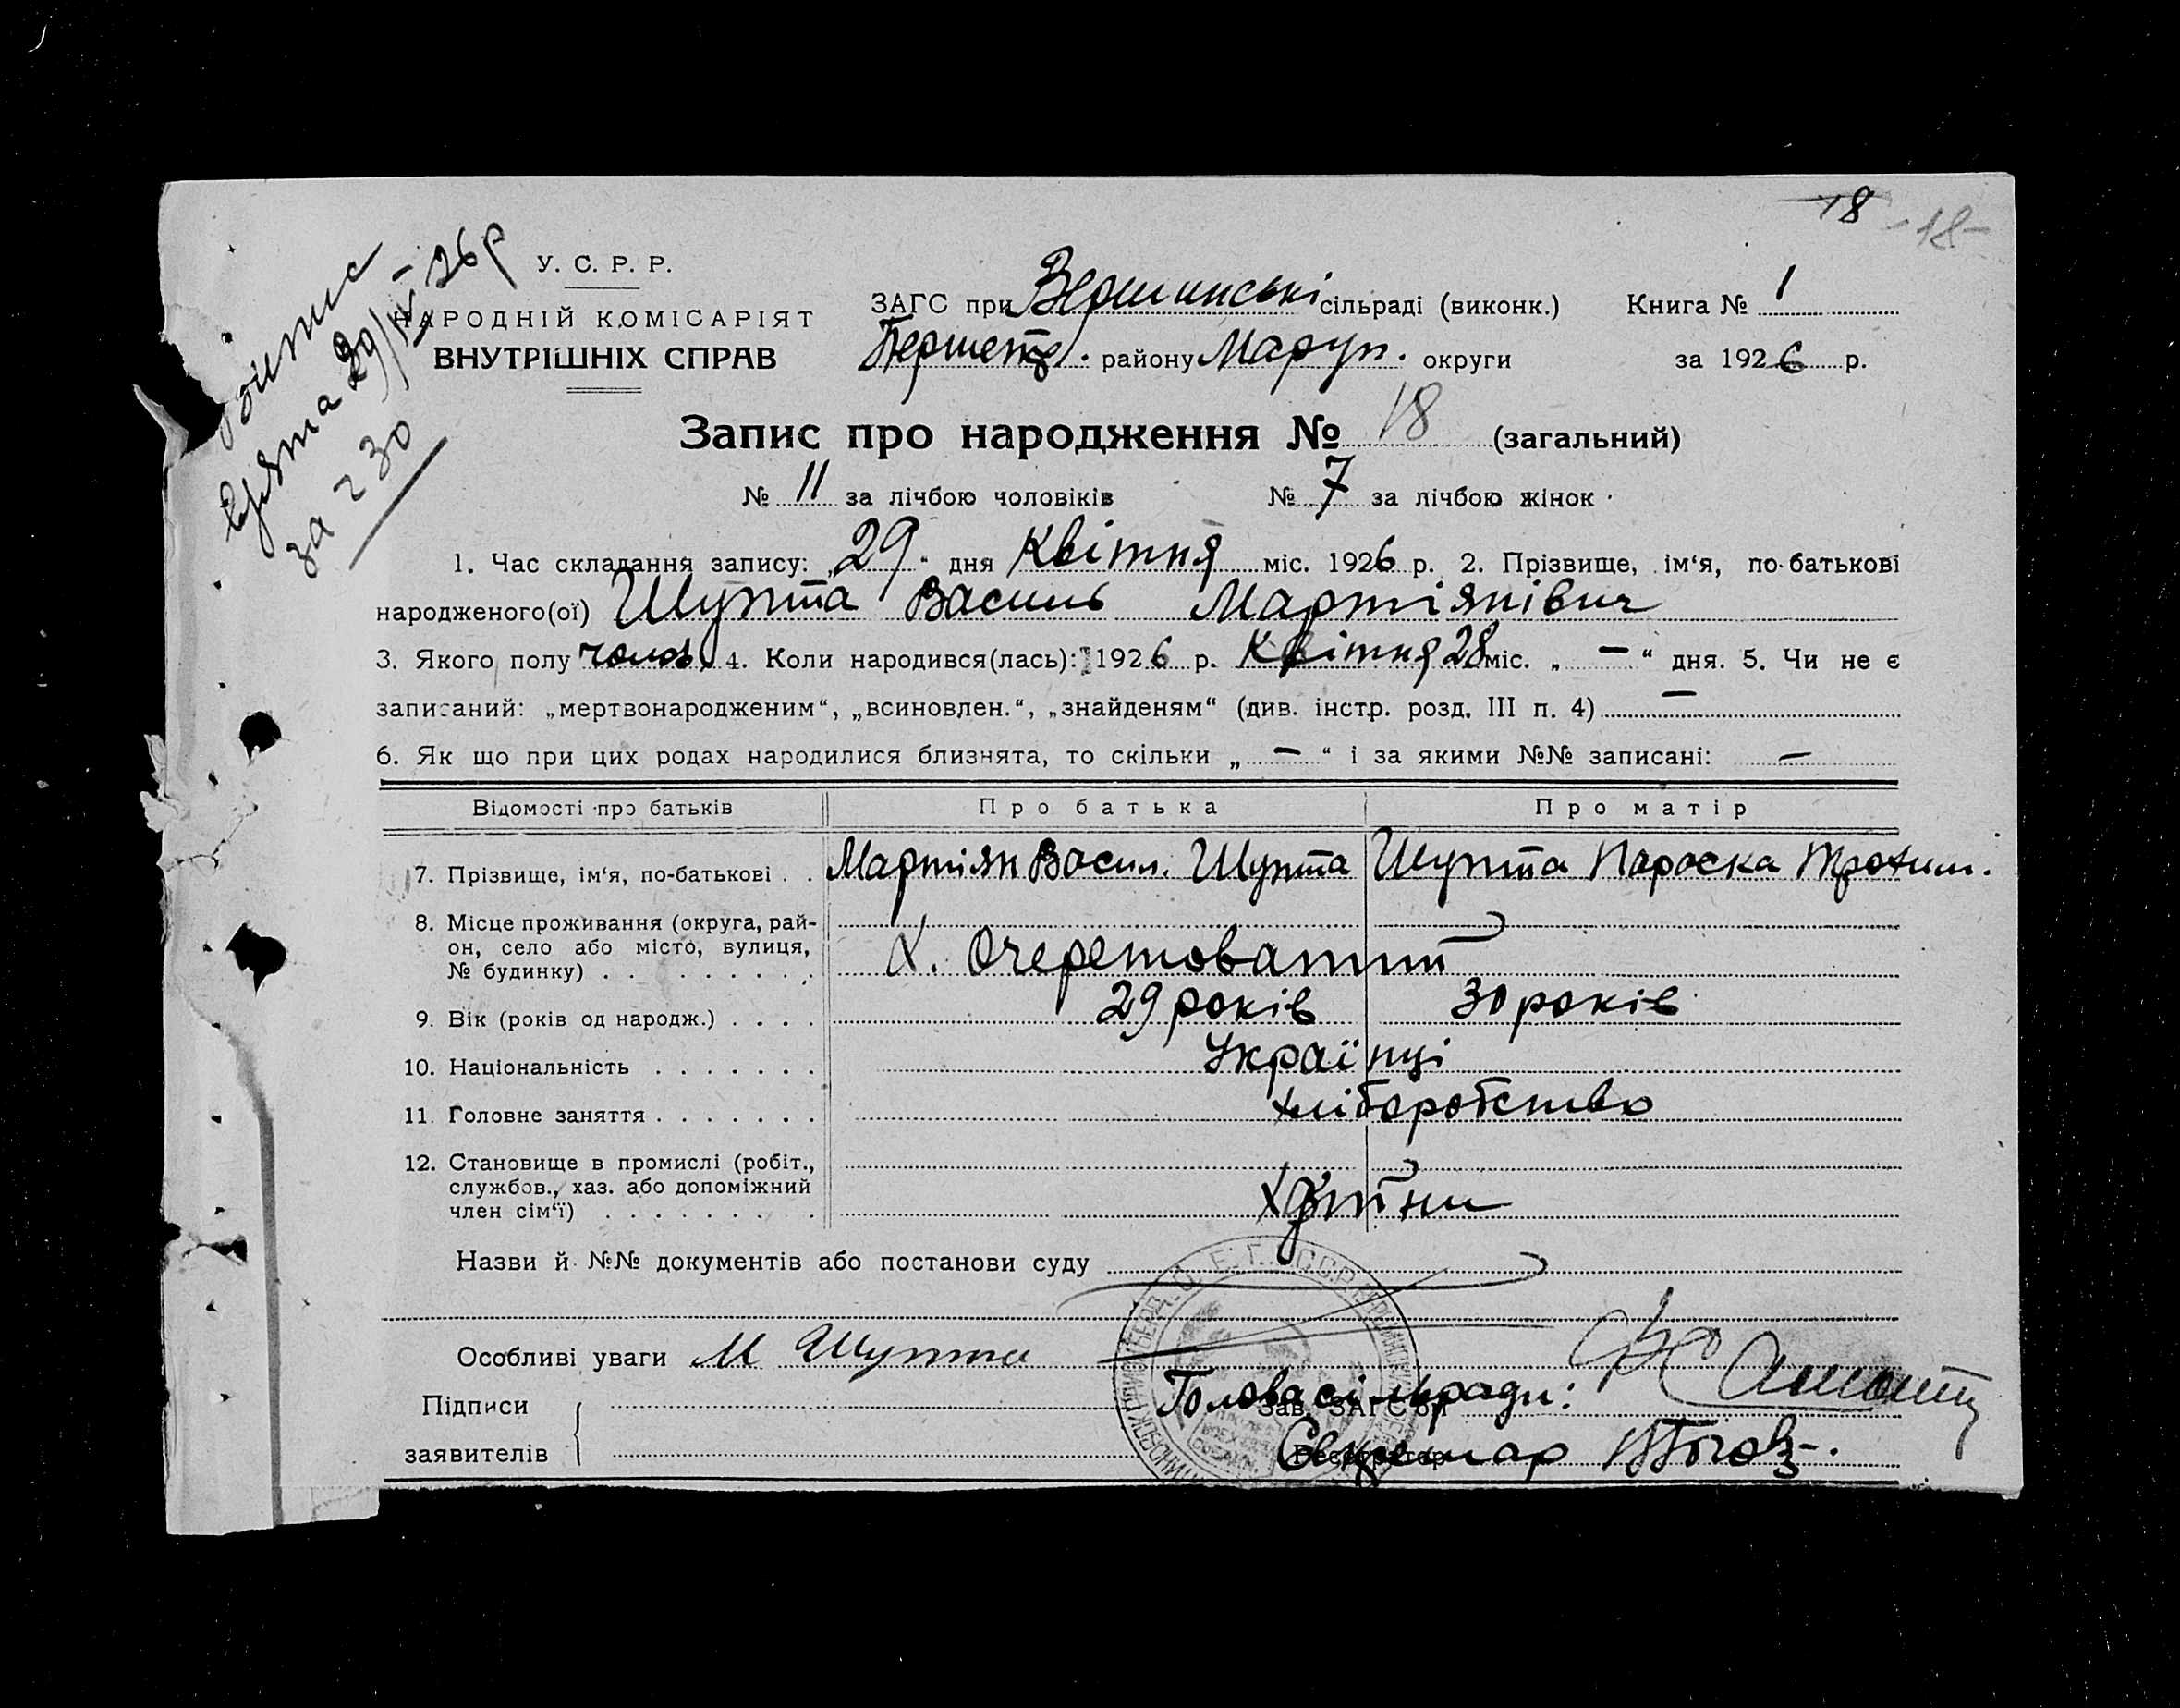 18 -18-
Виписка
У. С. Р. Р.
НАРОДНІЙ КОМІСАРІЯТ
ВНУТРІШНІХ СПРАВ
взята 29/IV-26 р
за № 230
ЗАГС при Вершинські сільраді (виконк.) Книга № 1
району Маруп. округи за 1926 р.
Запис про народження № 18 (загальний)
№ 11 за лічбою чоловіків № 7 за лічбою жінок
1. Час складання запису: „29“ дня Квітня міс. 1926 р. 2. Прізвище, ім‘я, по-батькові
народженого(ої) Шупта Василь Мартіянівич
3. Якого полу чолов. 4. Коли народився(лась): 1926 р. Квітня 28 міс. „ — “ дня. 5. Чи не є
записаний: „мертвонародженим“, „всиновлен.“, „знайденям“ (див. інстр. розд. III п. 4) —
6. Як що при цих родах народилися близнята, то скільки „ — “ і за якими №№ записані: —
Відомості про батьків Про батька Про матір
7. Прізвище, ім‘я, по-батькові . . Мартіян Васил. Шупта Шупта Пароска Трохим.
8. Місце проживання (округа, рай-
он, село або місто, вулиця,
№ будинку) . . . . . . . . Х. Очеретоватий
9. Вік (років од народж.) . . . . 29 років 30 років
10. Національність . . . . . . . Українці
11. Головне заняття . . . . . . . хліборобство
12. Становище в промислі (робіт.,
службов., хаз. або допоміжний
член сім‘ї) . . . . . . . .
Назви й №№ документів або постанови суду
Особливі уваги М Шупта
Підписи
заявителів
Голова сільради:
Зав. ЗАГС'ом
Секретар